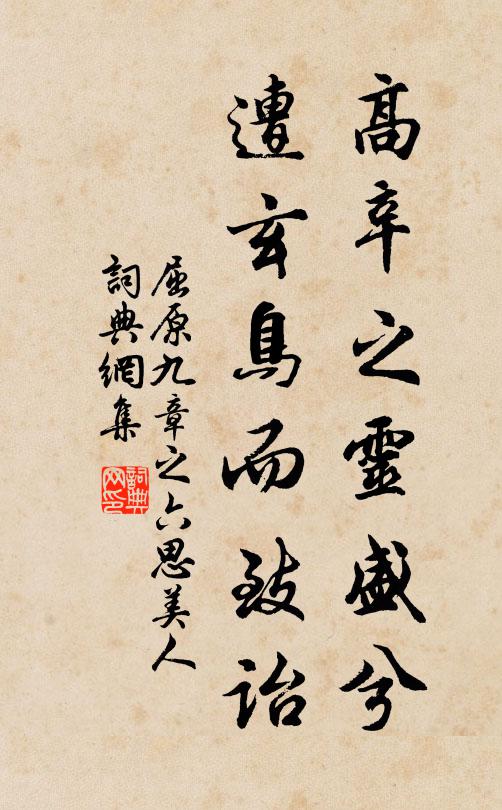 高辛之靈盛兮
遭玄鳥而致詒
屈原九章之六思美人
詞典網集
詞典
网印